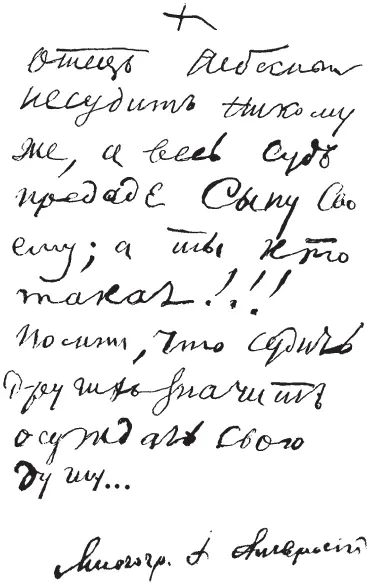 Отецъ Небесный
несудитъ Никому
же, а весь судъ
предаде Сыну Сво
ему; а ты кто
такая!!!
Помни, что судить
Другихъ значитъ
осуждать свою
душу...
Многогр. А Амвросій